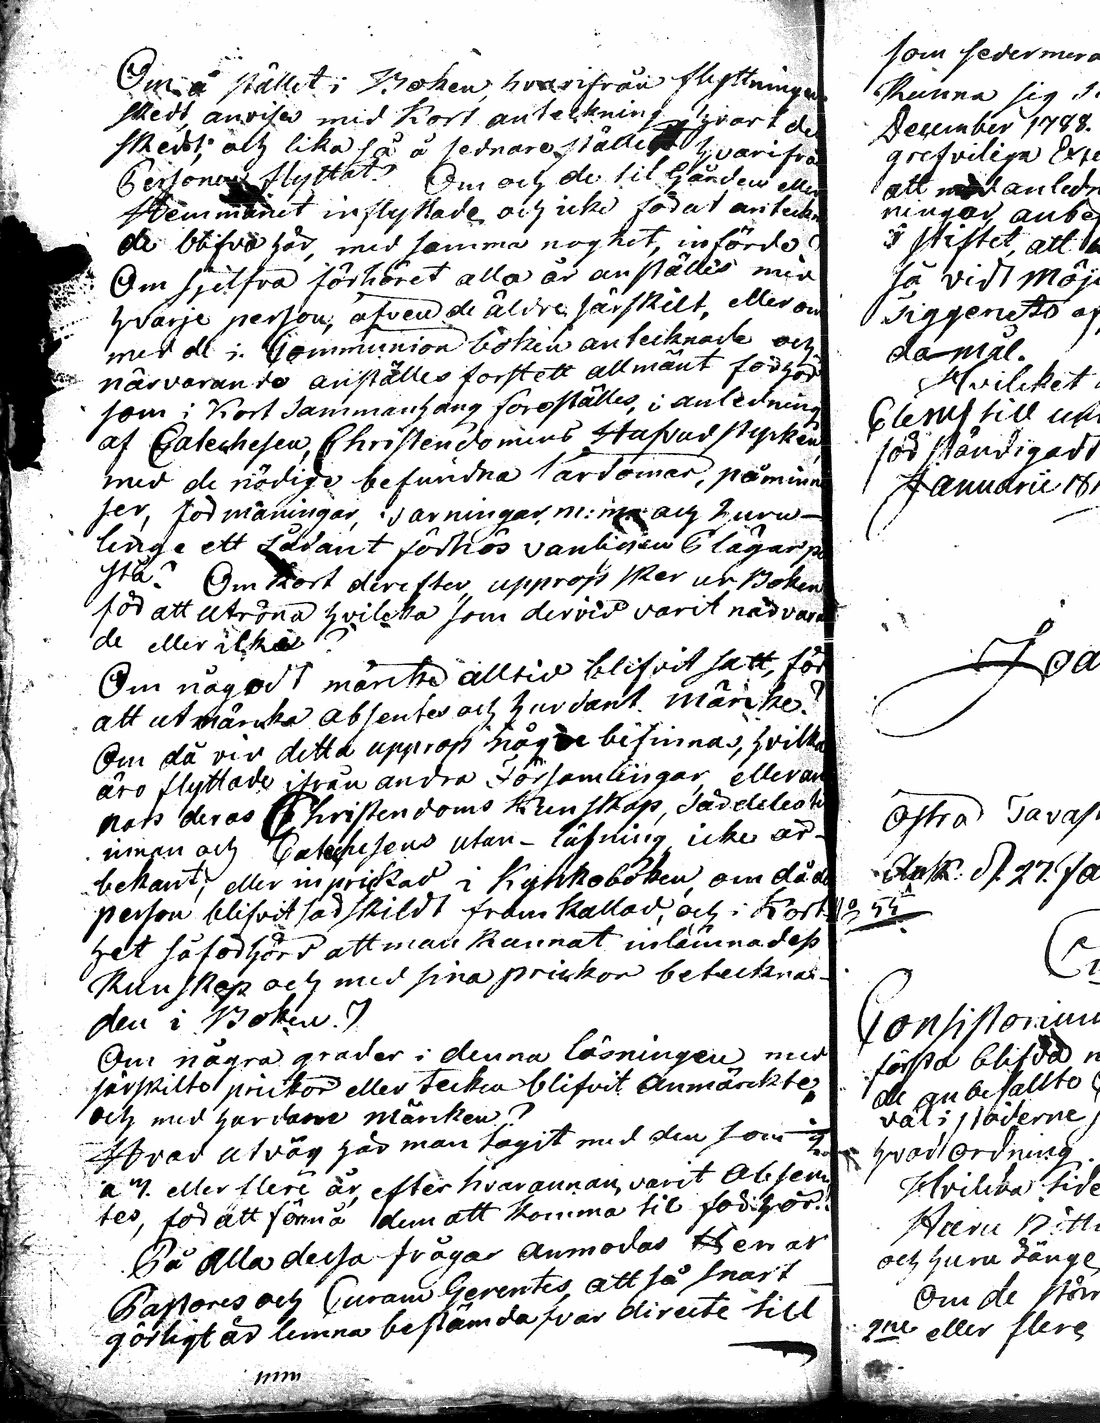 Om å stället i Boken, hvarifrån flyttningen
skedt, anvises med Kort anteckning hvart de
skedt; och lika så å sednare stället hvarifrån
Personen flyttat? Om och de til Gården eller
Hemmanet inflyttade och icke födat anteckna
de blifva här, med samma noghet, införde?
Om sjelfva förhöret alla år anställes med
hvarje person, äfven de äldre särskilt, eller om
med de i Communion boken antecknade och
närvarande anställes forstett allmänt förhör
som i Kort Sammanhang föreställes, i anledning
af Catechesen, Christendomens Hufvud stycken
med de nödige befundna lärdomar, påminnel
ser, förmaningar, varningar, m: m: och huru
länge ett sådant förhör vanligen plägar på
stå? Om Kort derefter upprop sker ur Boken
för att utröna hvilcka som dervid varit närvaran
de eller icke?
Om något märcke alltid blifvit satt, för
att utmärcka absentes och hurudant märcke?
Om då vid detta upprop någre befinnas, hvilka
äro flyttade ifrån andra Församlingar, eller an
nars deras Christendoms Kunskap, särdeles
innan och Catechesens utan-läsning icke är
bekant, eller inprickad i Kyrkoboken, om då de
person blifvit särskildt framkallad, och i Kort
het så förhörd att man kunnat inlämna dess
kunskap och med sina prickor beteckna
den i Boken?
Om några grader i denna läsningen med
särskilte prickor eller tecken blifvit anmärckte,
och med hurdane märcken?
Hvad utväg har man tagit med den som i
a 2. eller flere år, efter hvarannan, varit absen
tes, för att förmå dem att komma til förhör?
På alla dessa frågar anmodas Herrar
Pastores och Curam Gerentes, att så snart
görligt är lemna bestämda svar directe till
som sedermera
kunna sig
December 1788.
grefveliga Exce
att med anledn
ningar, anbe
i stiftet, att
så vidt möj
liggenets af
da mål.
Hvilcket
Clerus till un
för ständigadt
Januarii
Joa
Östra Tavast
Ank. d. 27. Ja
No 55
Consistorium
första blifva
de anbefallte
väl i städerne
hvad ordning
Hvilcka tide
Huru
och huru länge
Om de större
eller flere